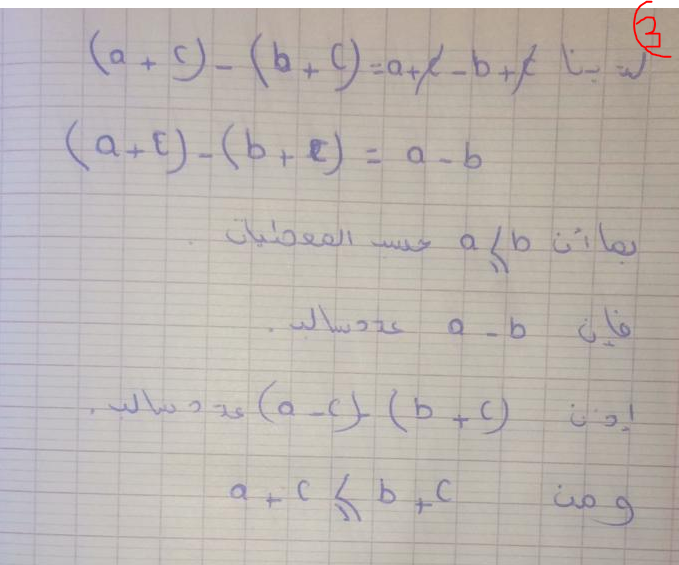 3
لدينا (a + c) - (b + c) = a + c - b + c
(a + c) - (b + c) = a - b
بما أن a ⩽ b حسب المعطيات .
فإن a - b عدد سالب .
إذن (a - c) - (b + c) عدد سالب .
ومن a + c ⩽ b + c